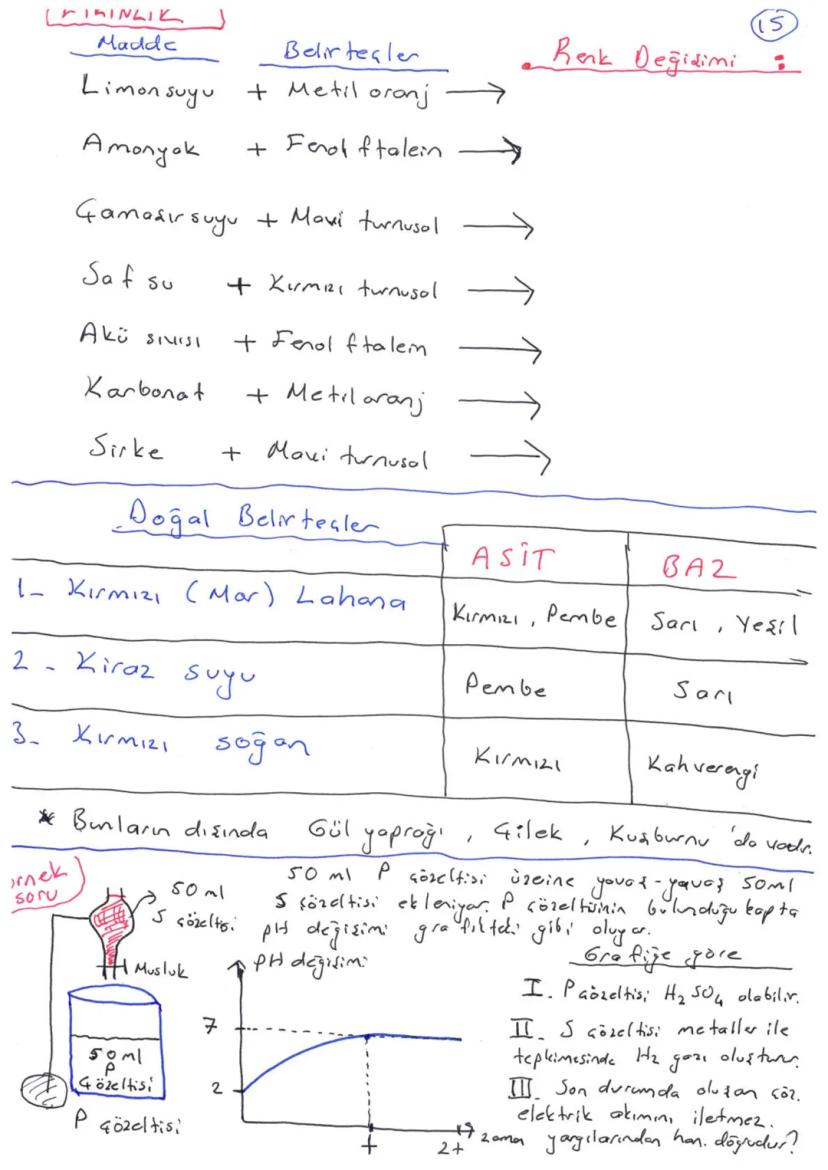 ETKİNLİK
15
Madde Belirteçler Renk Değişimi :
Limon suyu + Metil oranj →
Amonyak + Fenol ftalein →
Çamaşır suyu + Mavi turnusol →
Saf su + Kırmızı turnusol →
Akü sıvısı + Fenol ftalein →
Karbonat + Metil oranj →
Sirke + Mavi turnusol →
Doğal Belirteçler ASİT BAZ
1- Kırmızı (Mor) Lahana Kırmızı, Pembe Sarı, Yeşil
2- Kiraz suyu Pembe Sarı
3- Kırmızı soğan Kırmızı Kahverengi
* Bunların dışında Gül yaprağı, Çilek, Kuşburnu 'da vardır.
örnek
soru
50 ml
S çözeltisi
Musluk
50 ml
P
çözeltisi
P çözeltisi
50 ml P çözeltisi üzerine yavaş-yavaş 50 ml
S çözeltisi ekleniyor. P çözeltisinin bulunduğu kapta
pH değişimi grafikteki gibi oluyor.
pH değişimi
7
2
t
2t
zaman
Grafiğe göre
I. P çözeltisi H₂SO₄ olabilir.
II. S çözeltisi metaller ile
tepkimesinde H₂ gazı oluşturur.
III. Son durumda oluşan çöz.
elektrik akımını iletmez.
yargılarından han. doğrudur?